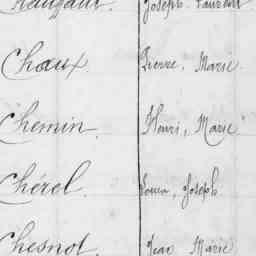 Joseph Laurent
Chaux. Pierre, Marie
Chemin. Henri, Marie
Chérel. Joseph
Chesnot. Jean Marie